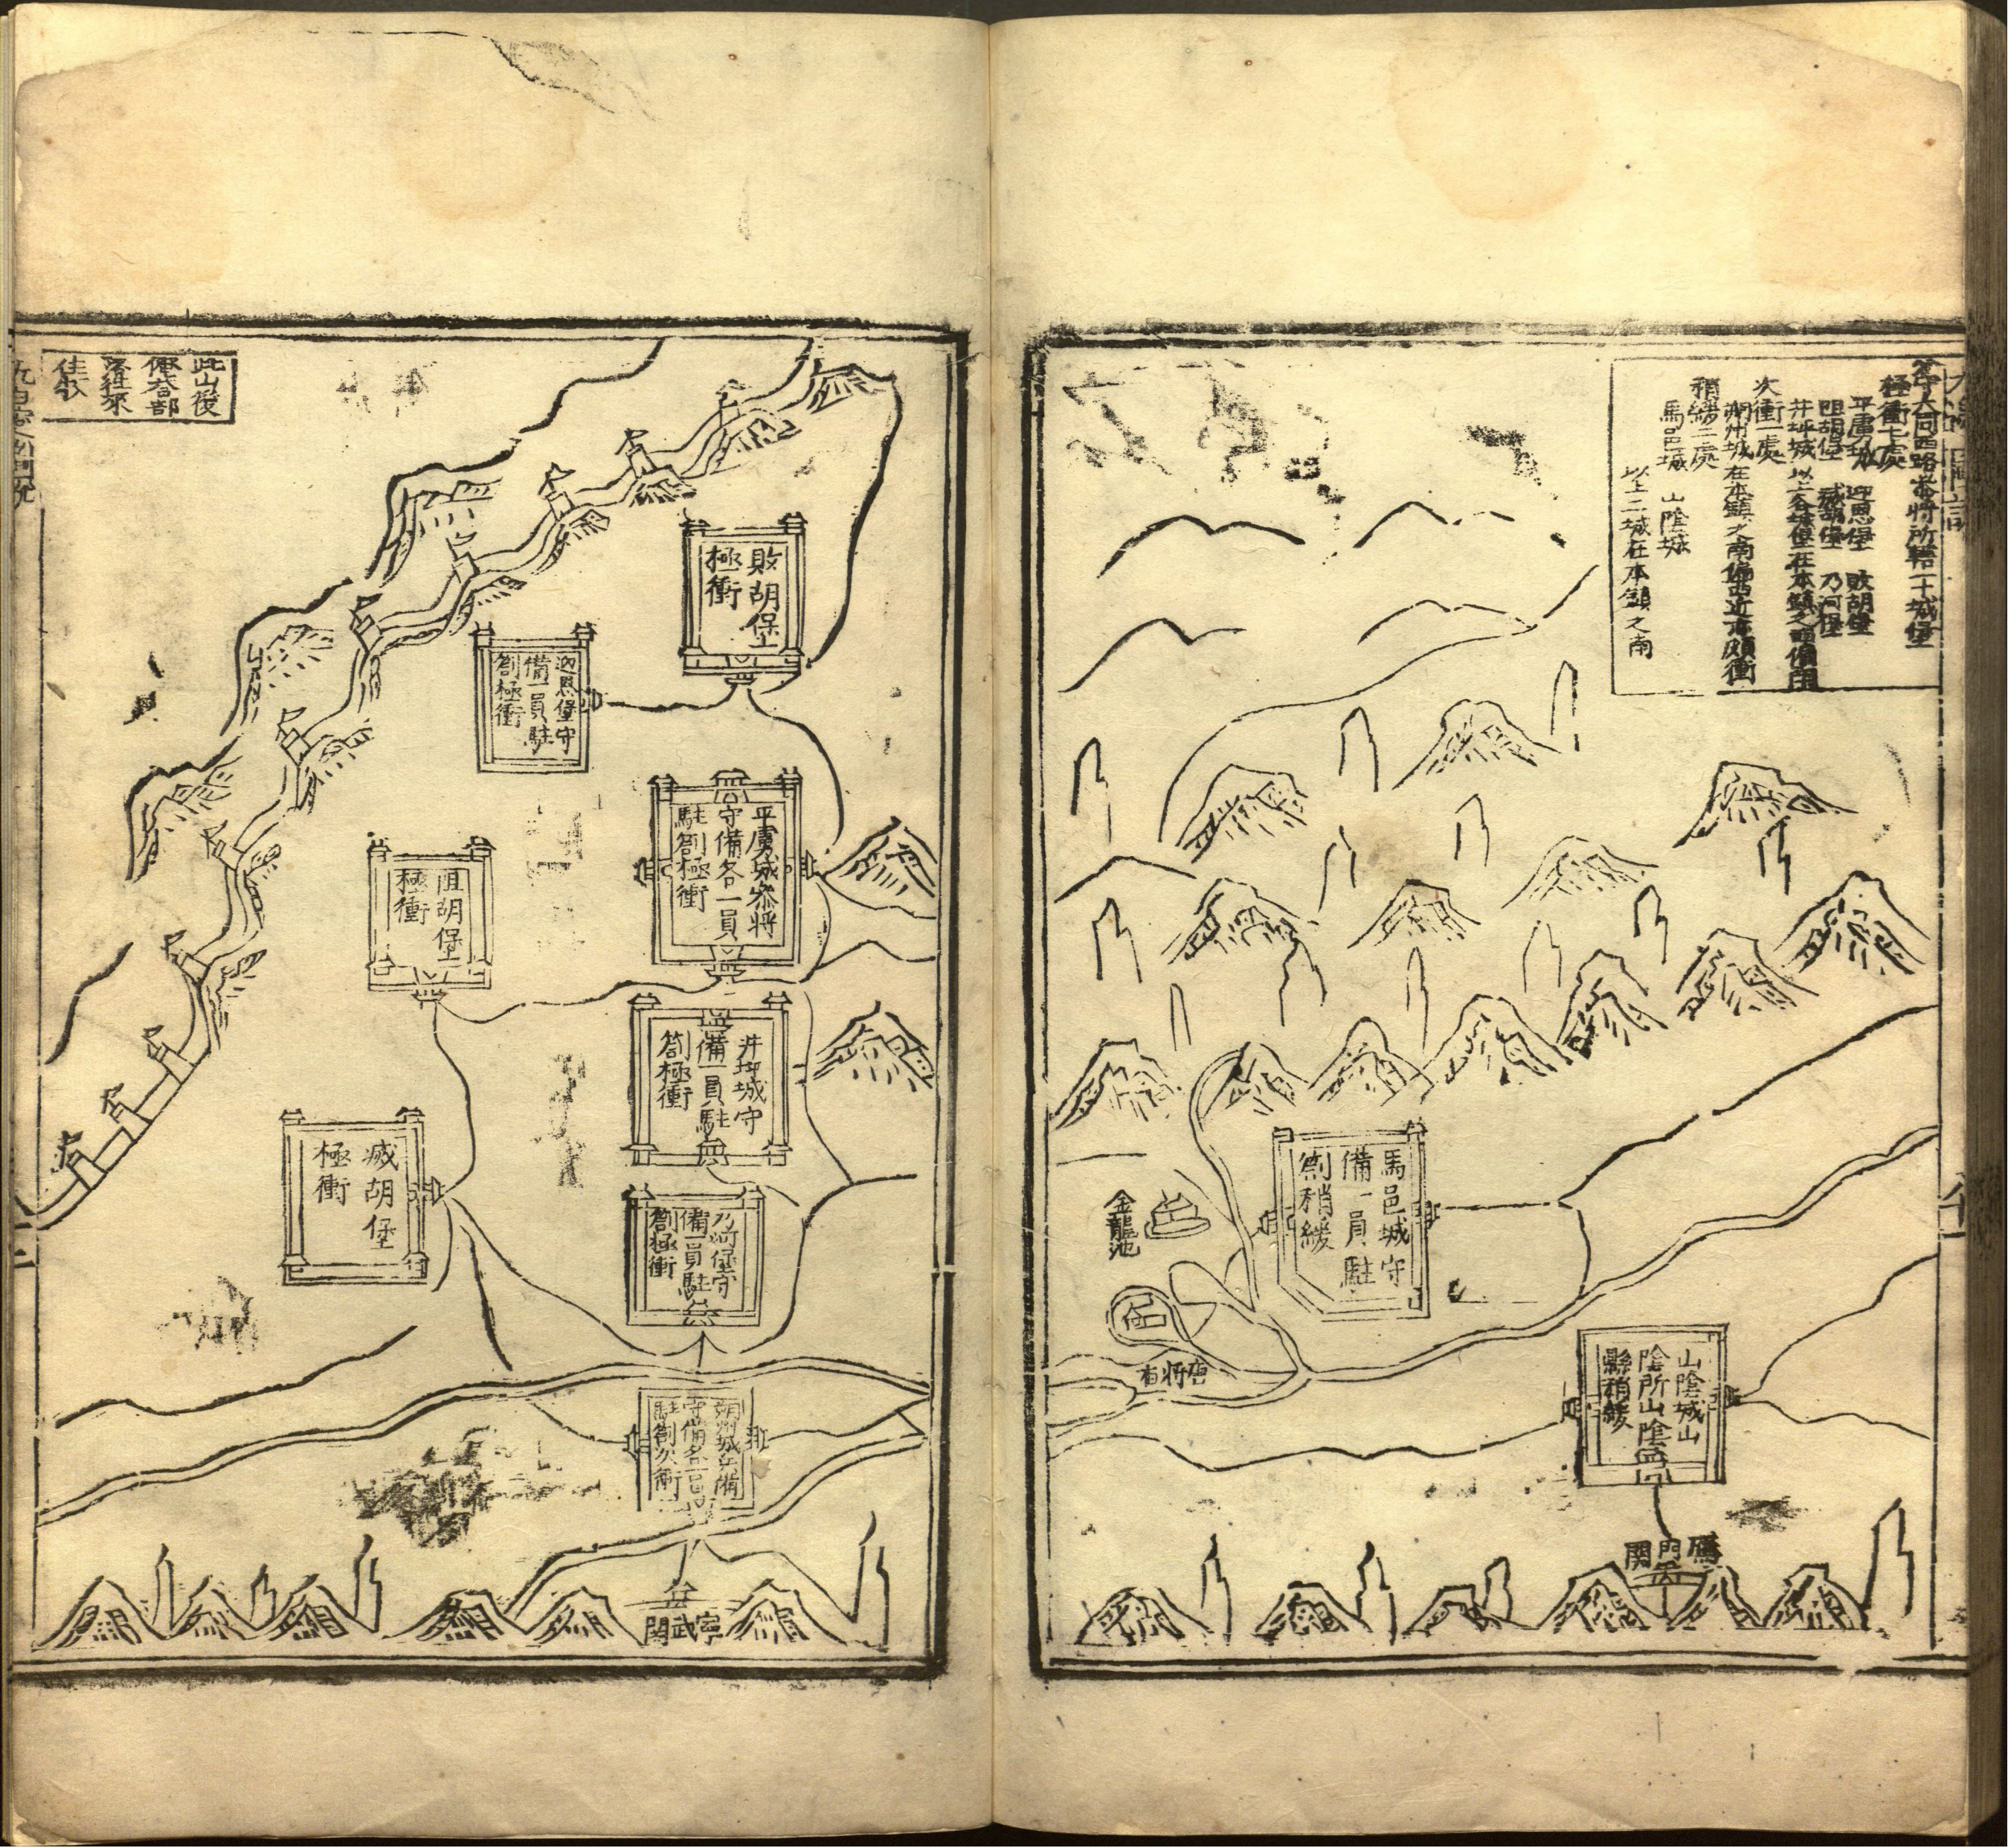 大同西路參將所轄十城堡
極衝七處
平虜城　迎恩堡　敗胡堡
阻胡堡　滅胡堡　乃河堡
井坪城　以上各城堡在本鎮之西偏南
次衝一處
朔州城　在本鎮之南偏西近亦頗衝
稍緩二處
馬邑城　山陰城
以上二城在本鎮之南
馬邑城守
備一員駐
劄稍緩
金龍池
山陰城山
陰所山陰
縣稍緩
鴈門関
敗胡堡
極衝
迎恩堡守
備一員駐
劄極衝
平虜城叅將
守備各一員
駐劄極衝
阻胡堡
極衝
井坪城守
備一員駐
劄極衝
滅胡堡
極衝
乃河堡守
備一員駐
劄極衝
朔州城兵備
守備各一員
駐劄次衝
寧武関
此山後
俺荅部
落往來
住牧